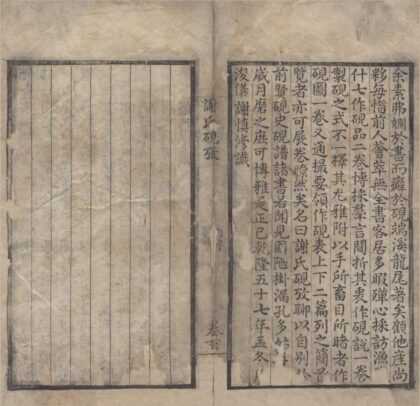 余素弗嫻於書而癖於硯端溪龍尾著矣顧他產尚
夥每惜前人薈萃無全書客居多暇殫心採訪漁
什七作硯品二卷博採羣言間折其衷作硯說一卷
製硯之式不一擇其尤雅附以手所畜目所睹者作
硯圖一卷又通撮要領作硯表上下二篇列之簡首
覽者亦可展卷瞭然矣名曰謝氏硯攷聊以自别於
前賢硯史硯譜諸書若聞見固陋掛漏孔多
歲月磨之庶可博雅是正已乾隆五十七年孟冬
浚儀謝慎修識
謝氏硯攷
卷首